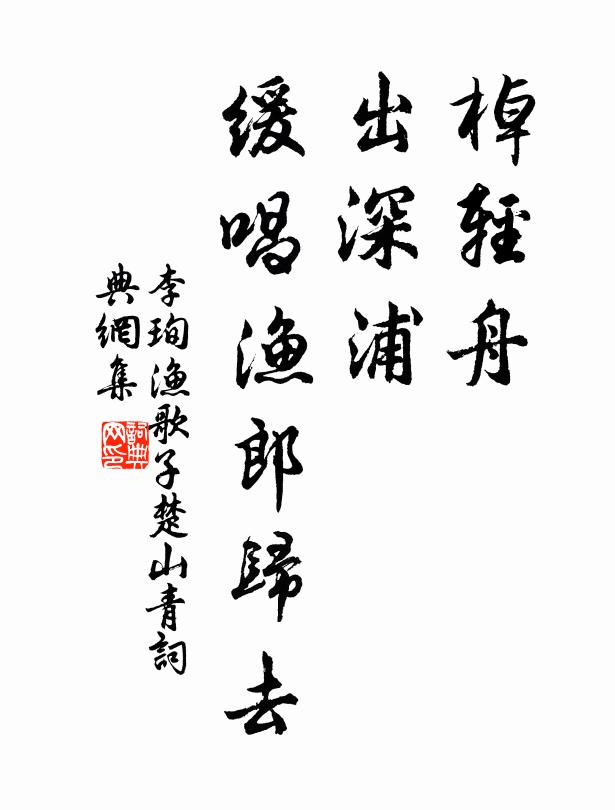 棹輕舟
出深浦
緩唱漁郎歸去
李珣漁歌子楚山青詞
典網集
詞典
网印